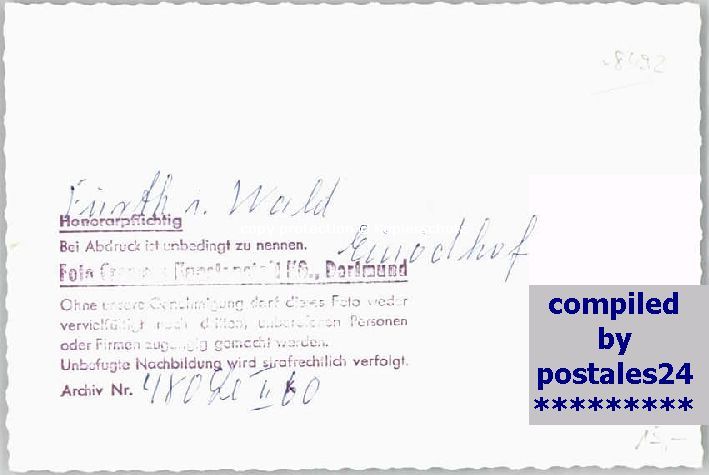 8492
Furth i. Wald
Honorarpflichtig
copy protection
Bei Abdruck ist unbedingt zu nennen.
Einödhof
Foto KG., Dortmund
Ohne unsere Genehmigung darf dieses Foto weder
vervielfältigt noch dritten, unberufenen Personen
oder Firmen zugängig gemacht werden.
Unbefugte Nachbildung wird strafrechtlich verfolgt.
Archiv Nr. 480 II 60
compiled
by
postales24
*********
15,-